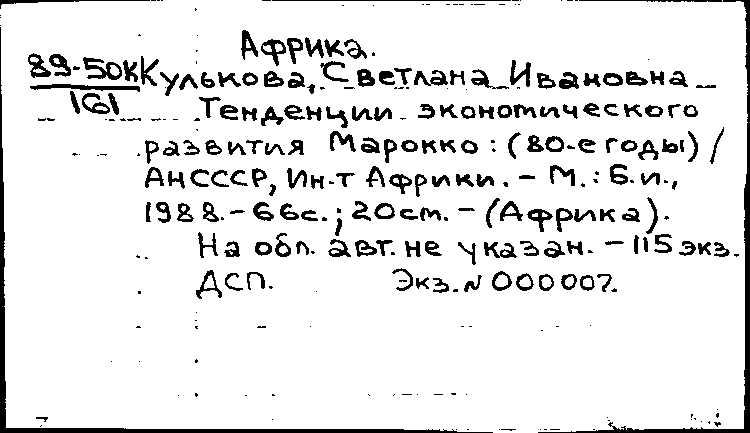 Африка.
89-50К Кулькова, Светлана Ивановна
161 Тенденции экономического
развития Марокко: (80-е годы) /
АН СССР, Ин-т Африки. - М.: Б.и.,
1988. - 66с.; 20 см. - (Африка).
На обл. авт. не указан. - 115 экз.
ДСП. Экз. № 000007.